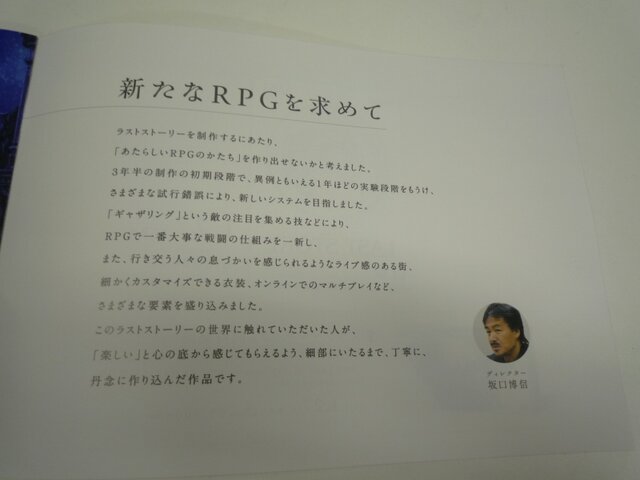 新たなRPGを求めて
ラストストーリーを制作するにあたり、
「あたらしいRPGのかたち」を作り出せないかと考えました。
3年半の制作の初期段階で、異例ともいえる1年ほどの実験段階をもうけ、
さまざまな試行錯誤により、新しいシステムを目指しました。
「ギャザリング」という敵の注目を集める技などにより、
RPGで一番大事な戦闘の仕組みを一新し、
また、行き交う人々の息づかいを感じられるようなライブ感のある街、
細かくカスタマイズできる衣装、オンラインでのマルチプレイなど、
さまざまな要素を盛り込みました。
このラストストーリーの世界に触れていただいた人が、
「楽しい」と心の底から感じてもらえるよう、細部にいたるまで、丁寧に、
丹念に作り込んだ作品です。
ディレクター
坂口博信